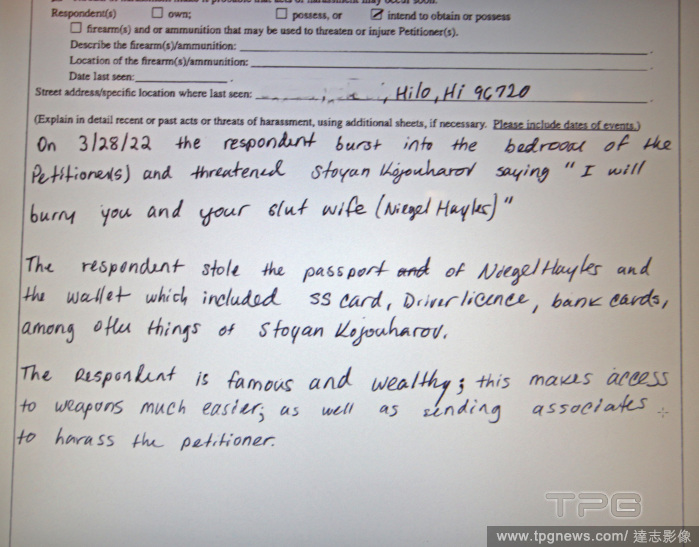 Respondent(s) own; possess, or intend to obtain or possess
firearm(s) and or ammunition that may be used to threaten or injure Petitioner(s).
Describe the firearm(s)/ammunition:
Location of the firearm(s)/ammunition:
Date last seen:
Street address/specific location where last seen: , Hilo, Hi 96720
(Explain in detail recent or past acts or threats of harassment, using additional sheets, if necessary. Please include dates of events.)
On 3/28/22 the respondent burst into the bedroom of the
Petitioner(s) and threatened Stoyan Kojouharov saying "I will
burry you and your slut wife (Niegel Hayles)"
The respondent stole the passport and of Niegel Hayles and
the wallet which included SS card, Driver licence, bank cards,
among other things of Stoyan Kojouharov.
The Respondent is famous and wealthy; this makes access
to weapons much easier; as well as sending associates
to harass the petitioner.
TPG
www.tpgnews.com/ 達志影像